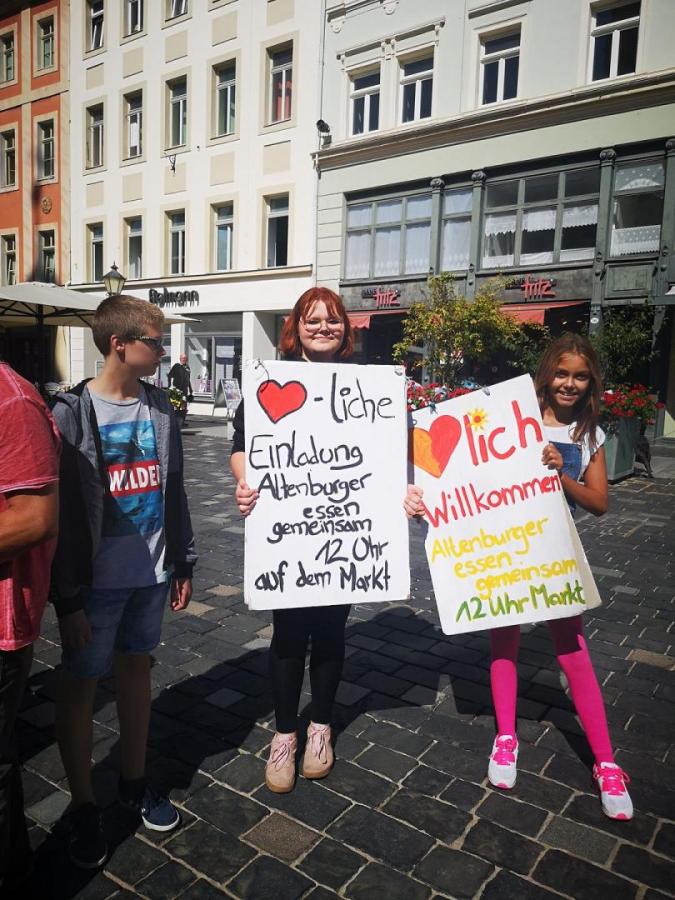 Bofmann
fritz
fritz
WILDER
❤-liche
Einladung
Altenburger
essen
gemeinsam
12 Uhr
auf dem Markt
❤lich
Willkommen
Altenburger
essen
gemeinsam
12 Uhr Markt